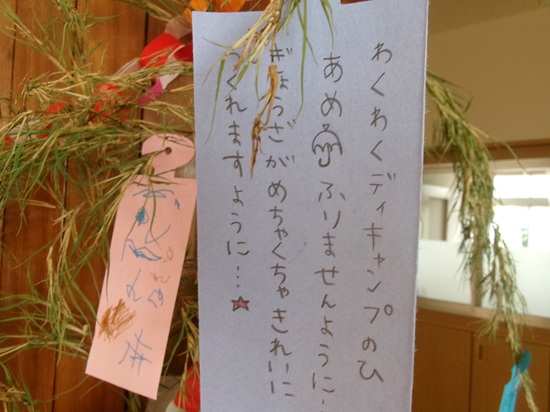 わくわくディキャンプのひ
あめ ふりませんように・
ぎょうざがめちゃくちゃきれいに
つくれますように…